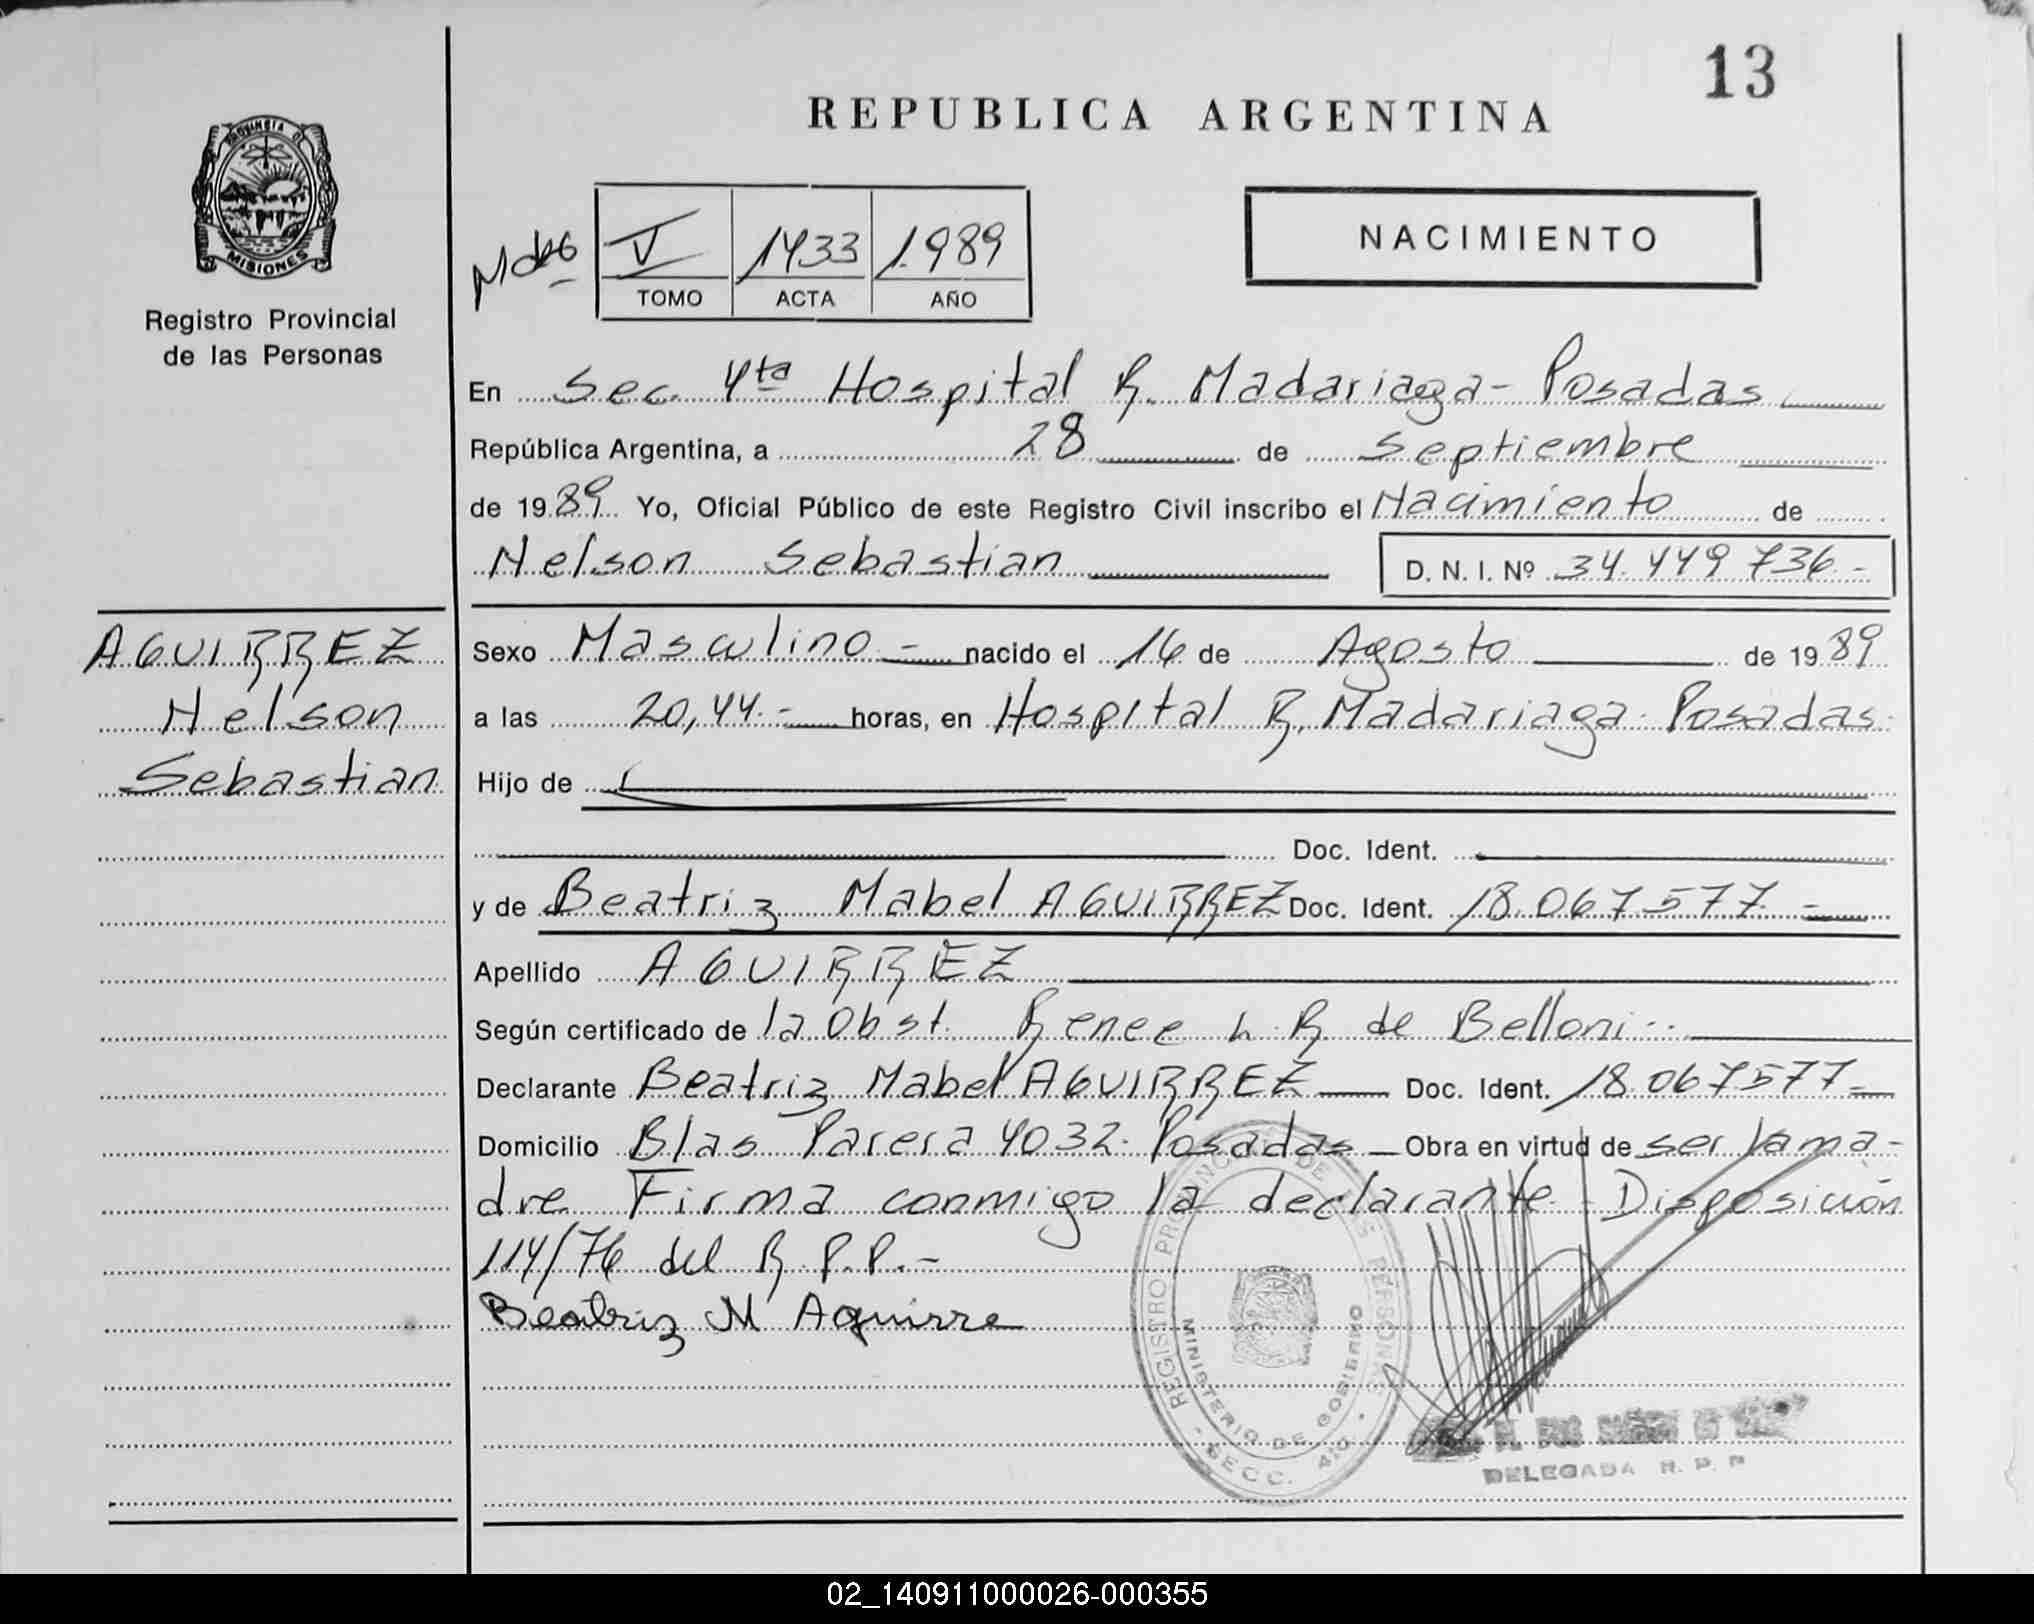 13
REPUBLICA ARGENTINA
PROVINCIA DE
MISIONES
Registro Provincial
de las Personas
V 1433 1.989
TOMO ACTA AÑO
NACIMIENTO
En Sec. 4ta Hospital R. Madariaga - Posadas
República Argentina, a 28 de Septiembre
de 1989 Yo, Oficial Público de este Registro Civil inscribo el Nacimiento de
Nelson Sebastian D. N. I. Nº 34.449736.-
AGUIRREZ
Nelson
Sebastian
Sexo Masculino - nacido el 16 de Agosto de 1989
a las 20,44.- horas, en Hospital R. Madariaga. Posadas.
Hijo de
Doc. Ident.
y de Beatriz Mabel AGUIRREZ Doc. Ident. 18.067577.-
Apellido AGUIRREZ
Según certificado de la Obst. Renee L. R. de Belloni.-
Declarante Beatriz Mabel AGUIRREZ Doc. Ident. 18.067577-
Domicilio Blas Parera 4032. Posadas - Obra en virtud de ser la ma-
dre. Firma conmigo la declarante. Disposición
114/76 del R.P.P.-
Beatriz M Aguirre
REGISTRO PROVINCIAL DE LAS PERSONAS
MINISTERIO DE GOBIERNO
SECC. 4ta.
DELEGADA R. P. P.
02_140911000026-000355